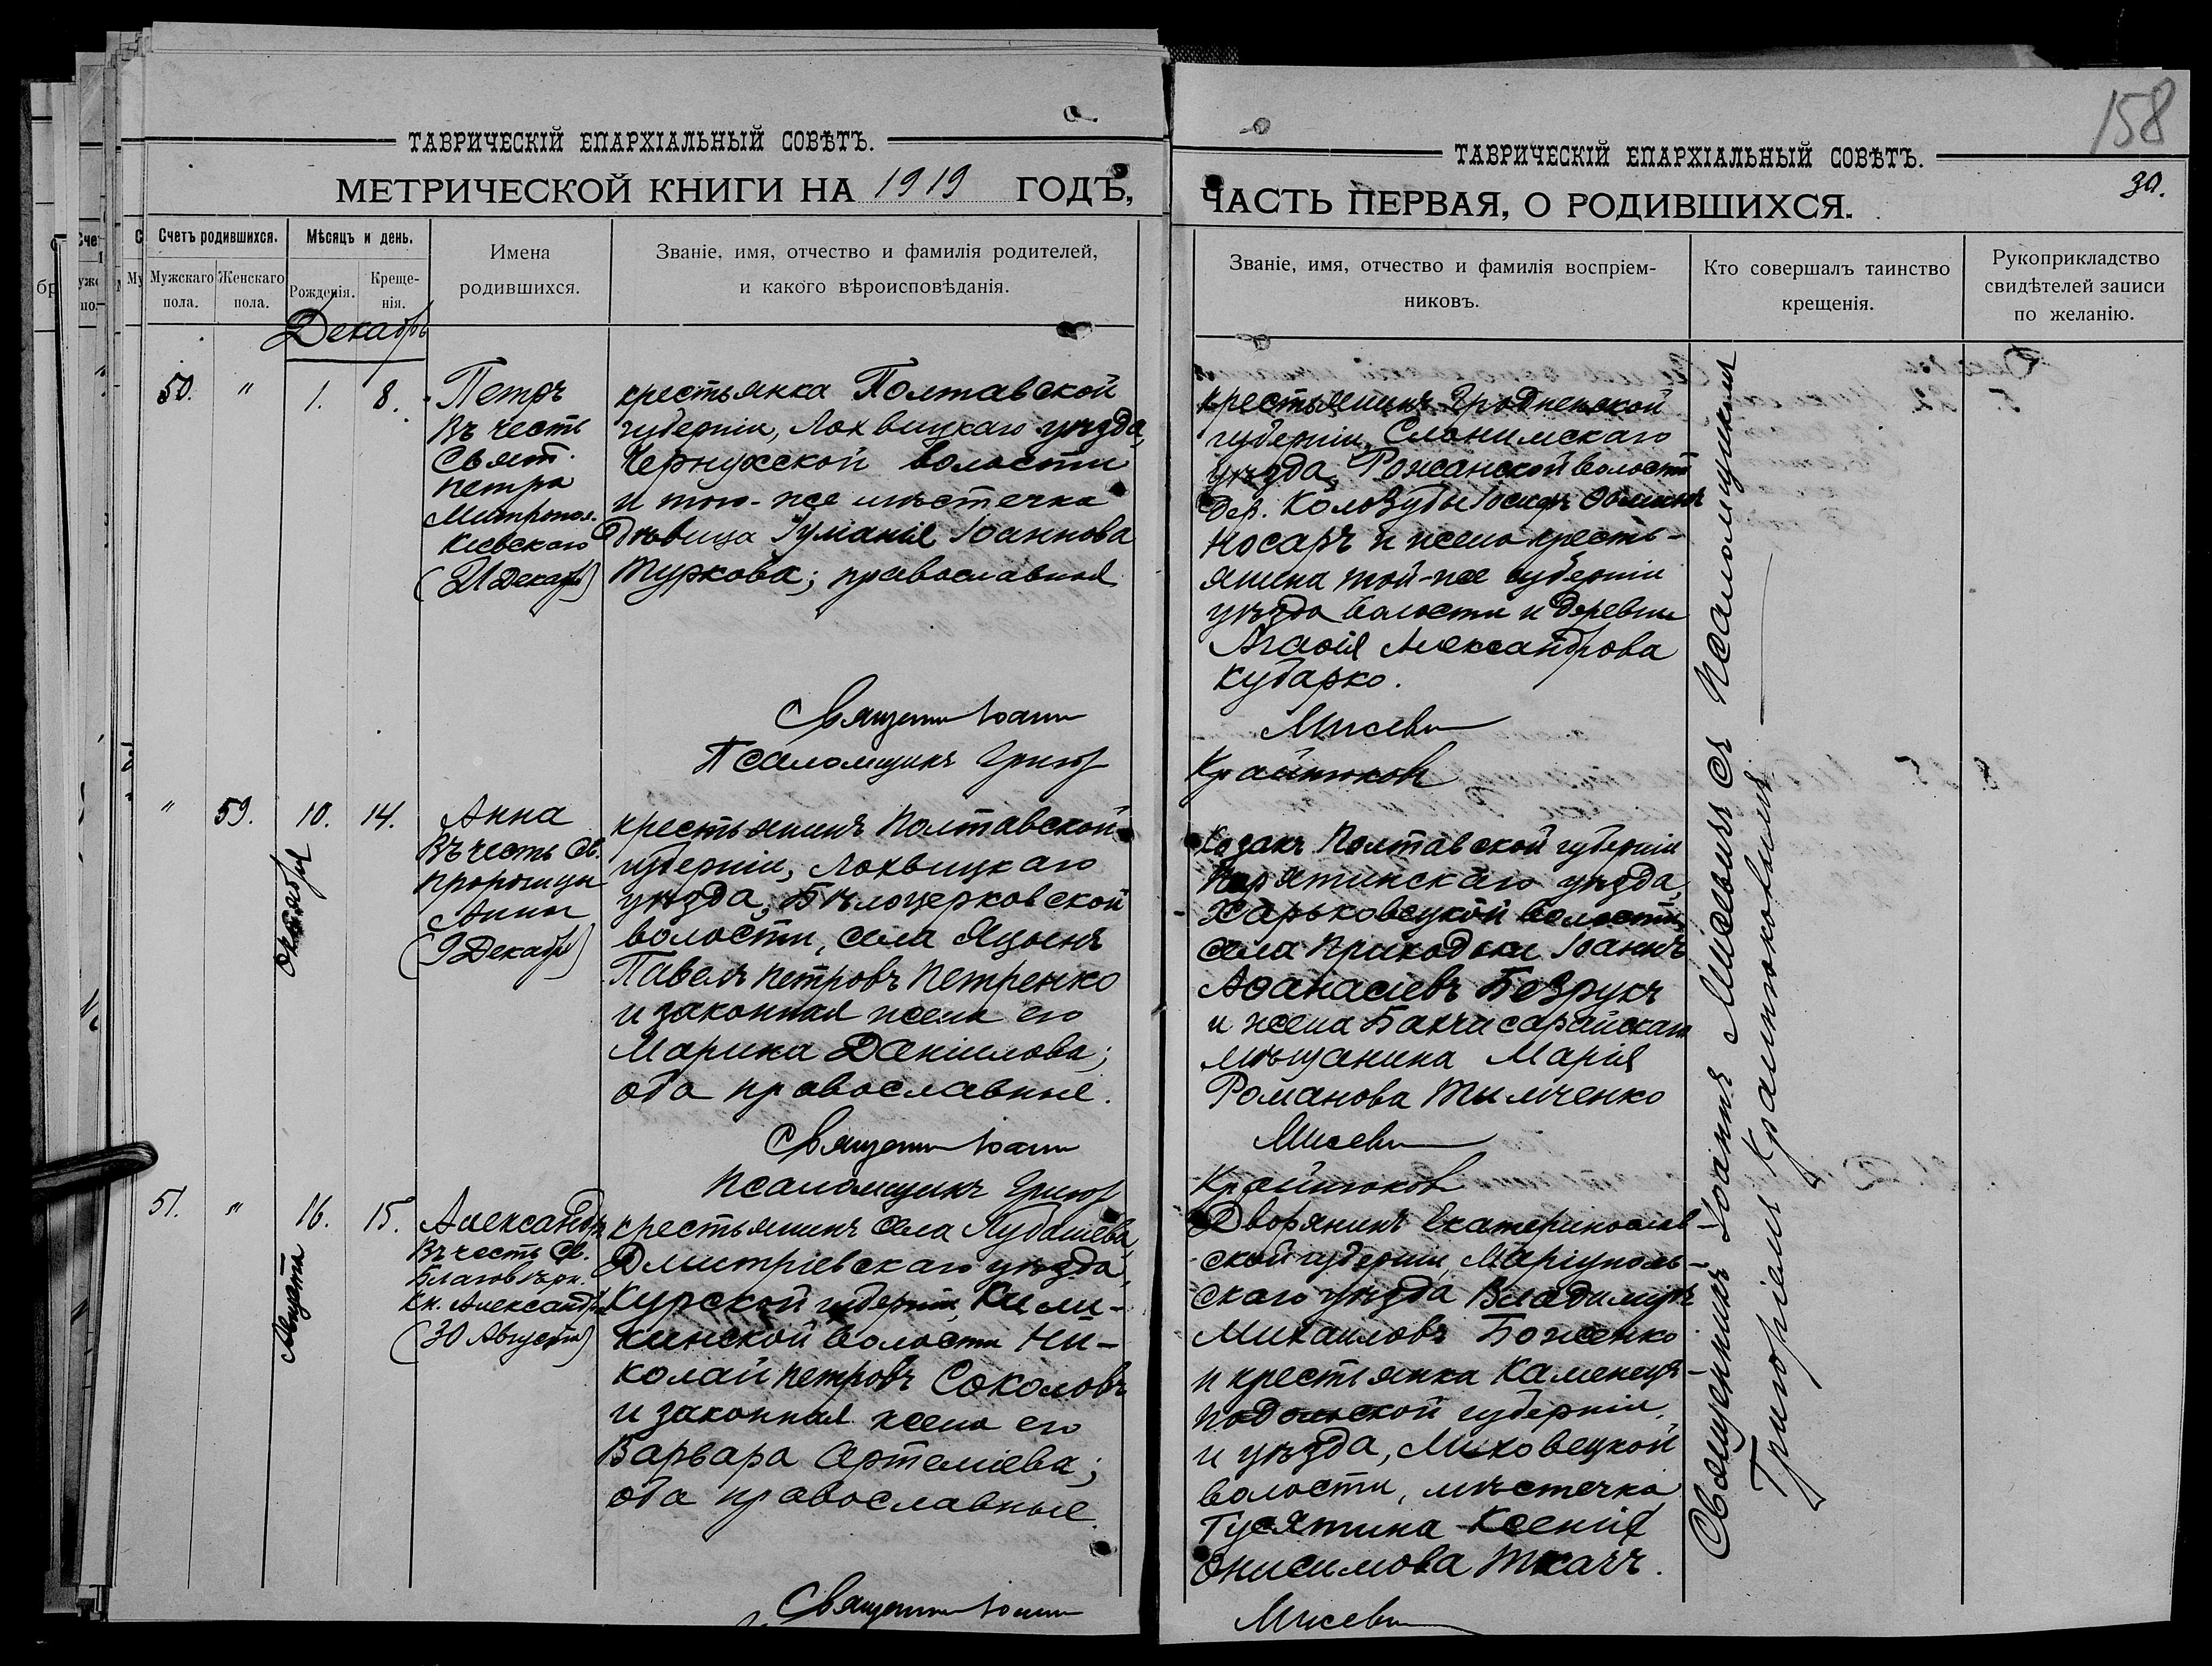 ТАВРИЧЕСКІЙ ЕПАРХІАЛЬНЫЙ СОВѢТЪ.
МЕТРИЧЕСКОЙ КНИГИ НА 1919 ГОДЪ,
Счетъ родившихся.
Мужскаго пола.
Женскаго пола.
Мѣсяцъ и день.
Рожденія.
Креще-
нія.
Имена
родившихся.
Званіе, имя, отчество и фамилія родителей,
и какого вѣроисповѣданія.
Декабрь
50. " 1. 8.
Петръ
Въ честь
Свят.
Петра
Митропол.
Кіевскаго
(21 Декабр)
крестьянка Полтавской
губерніи, Лохвицкаго уѣзда,
Чернухской волости
и того-же мѣстечка
дѣвица Іуманія Іоаннова
Туркова; православная
Священн Іоанн
Псаломщикъ Григор
" 59. 10. 14.
Октября
Анна
Въ честь Св.
пророчицы
Анны
(9 Декабр)
крестьянинъ Полтавской
губерніи, Лохвицкаго
уѣзда, Бѣлоцерковской
волости, села Яцыенъ
Павелъ Петровъ Петренко
и законная жена его
Марина Даніилова;
оба православные.
Священн Іоанн
Псаломщикъ Григор
51. " 16. 15.
Августа
Александръ
Въ честь Св.
Благовѣрн.
Кн. Александр
(30 Августа)
крестьянинъ села Лубашева,
Дмитріевскаго уѣзда,
Курской губерніи, Кили-
кинской волости Ни-
колай Петровъ Соколовъ
и законная жена его
Варвара Артеміева;
оба православные.
Священн Іоанн
158
ТАВРИЧЕСКІЙ ЕПАРХІАЛЬНЫЙ СОВѢТЪ.
30.
ЧАСТЬ ПЕРВАЯ, О РОДИВШИХСЯ.
Званіе, имя, отчество и фамилія воспріем-
никовъ.
Кто совершалъ таинство
крещенія.
Рукоприкладство
свидѣтелей записи
по желанію.
крестьянинъ Гродненской
губерніи, Слонимскаго
уѣзда, Рожанской волости
дер. Колозубы Іосифъ
Носаръ и жена кресть-
янина той-же губерніи
уѣзда волости и деревни
Агафія Александрова
Кубарко.
Мисеви
Крайнюковъ
Козакъ Полтавской губерніи
Пирятинскаго уѣзда,
Харьковецкой волости,
села Приходьки Іоаннъ
Аѳанасіевъ Безрукъ
и жена Бахчисарайскаго
мѣщанина Марія
Романова Тимченко
Мисеви
Крайнюковъ
Дворянинъ Екатеринослав-
ской губерніи, Маріуполь-
скаго уѣзда Владиміръ
Михаиловъ Боженко
и крестьянка Каменецъ-
Подольской губерніи,
и уѣзда, Миховецкой
волости, мѣстечка
Гусятина Ксенія
Онисимова Ткачъ.
Мисеви
Священникъ Іоаннъ Мисевичъ съ Псаломщикомъ
Григоріемъ Крайнюковымъ